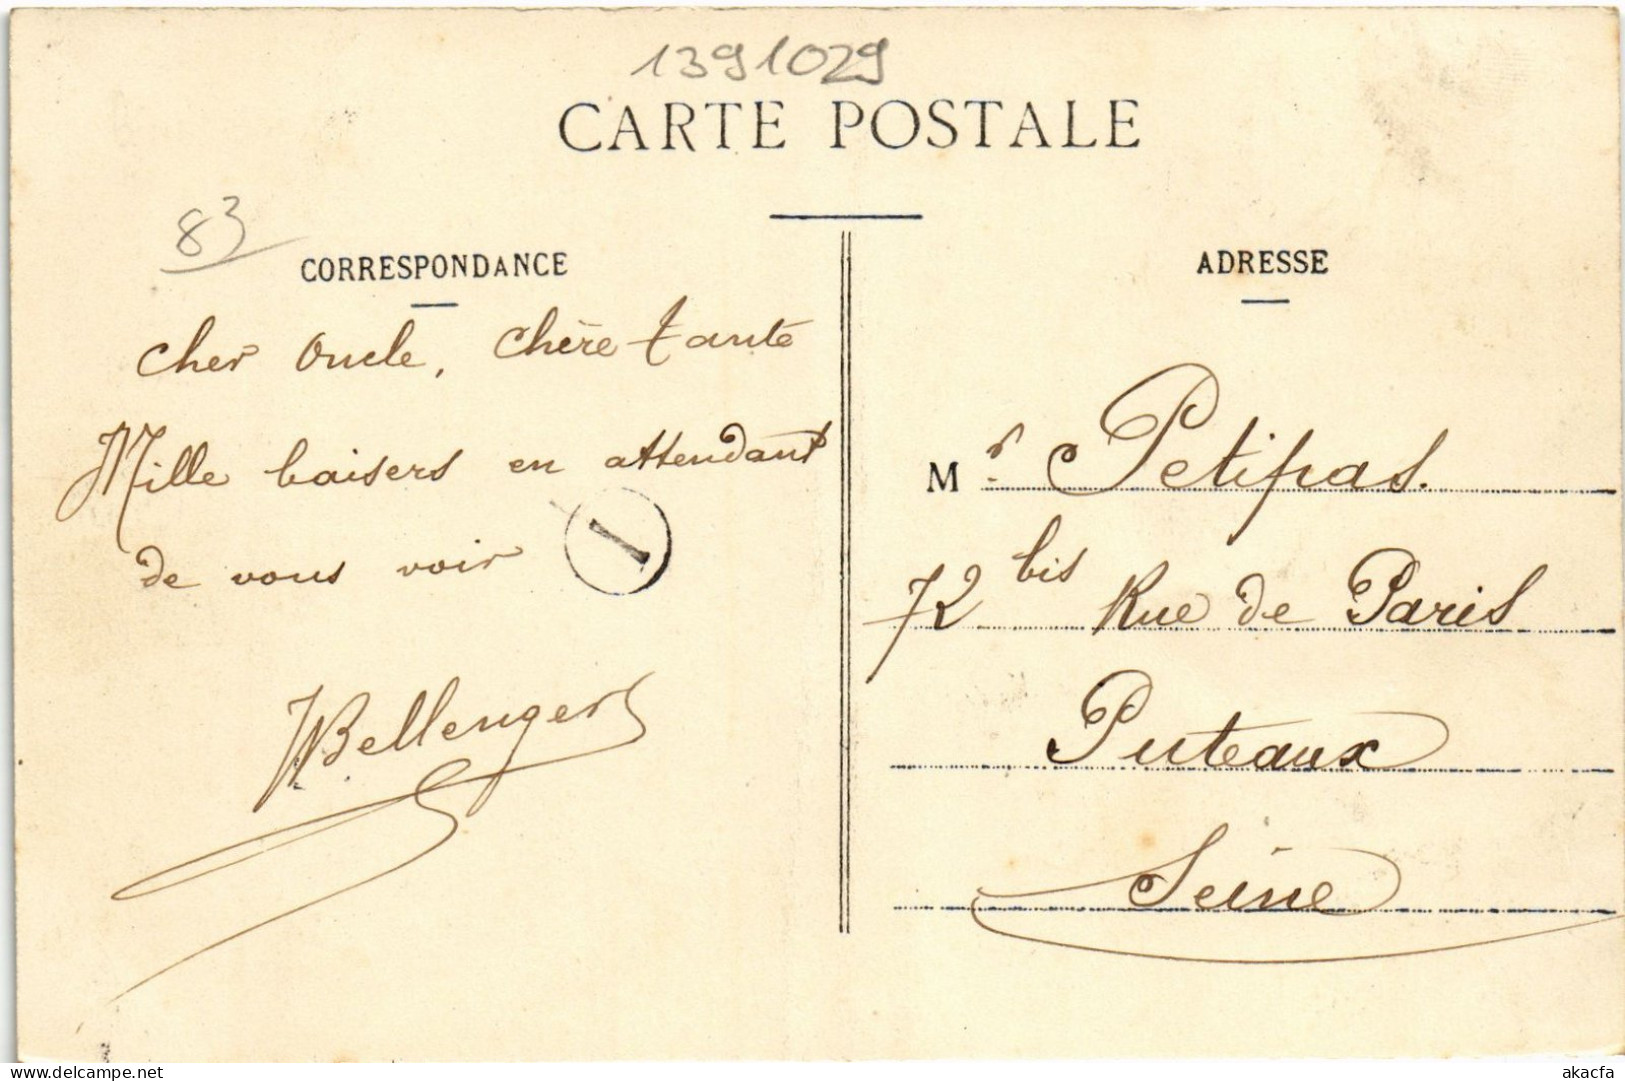 1391029
CARTE POSTALE
83
CORRESPONDANCE
cher Oncle, chère tante
Mille baisers en attendant
de vous voir
I
Bellenger
ADRESSE
Mr. Petitpas.
72 bis Rue de Paris
Puteaux
Seine
akacfa